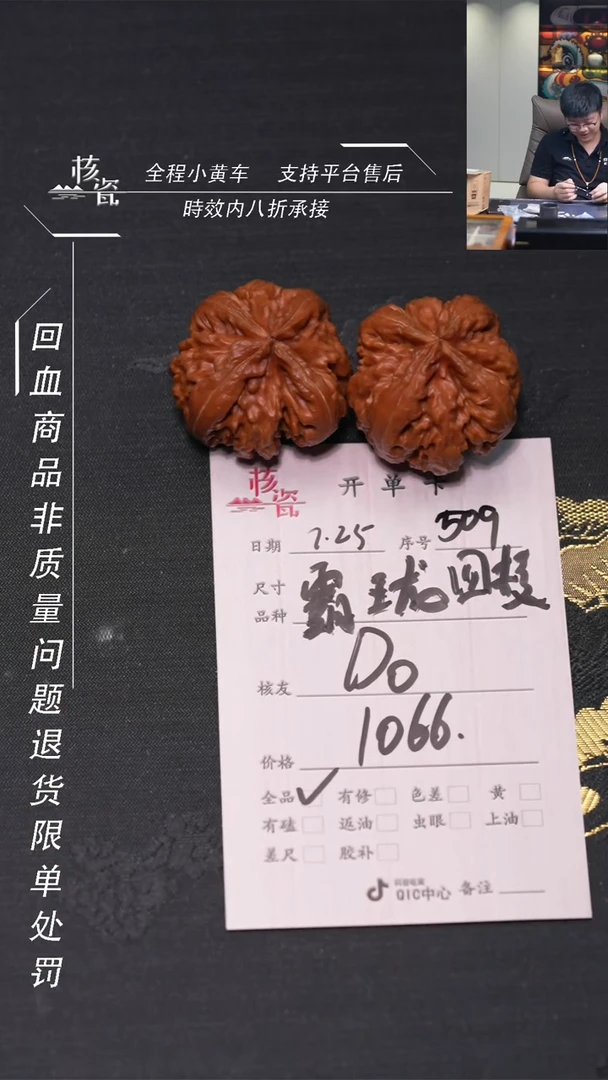 核瓷
全程小黄车 支持平台售后
時效内八折承接
回血商品非质量问题退货限单处罚
核瓷
开单卡
日期 7.25 序号 509
尺寸
品种
核友 Do
价格 1066.
全品 ✓ 有修 色差 黄
有磕 返油 虫眼 上油
差尺 胶补
QIC中心 备注